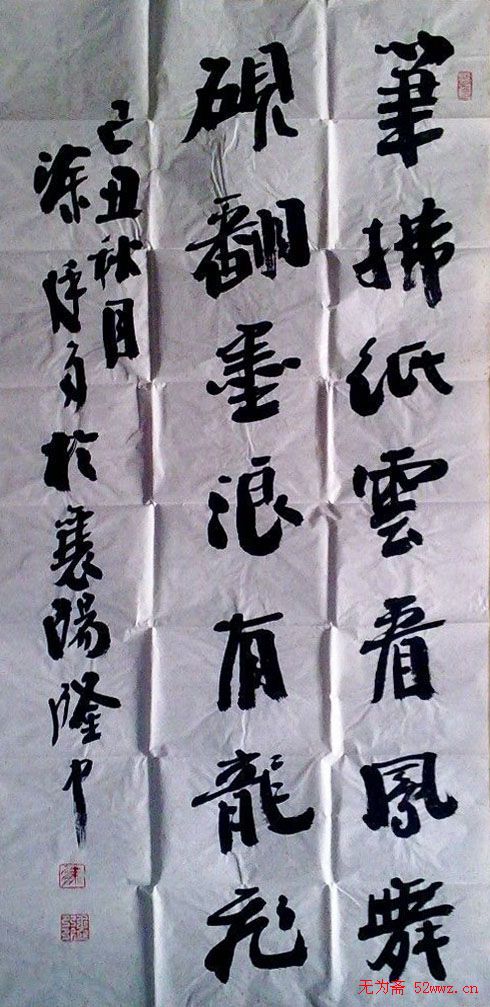 筆掃紙雲看鳳舞
硯翻墨浪有龍飛
己丑秋月
涂於襄陽隆中
无为斋 52wwz.cn